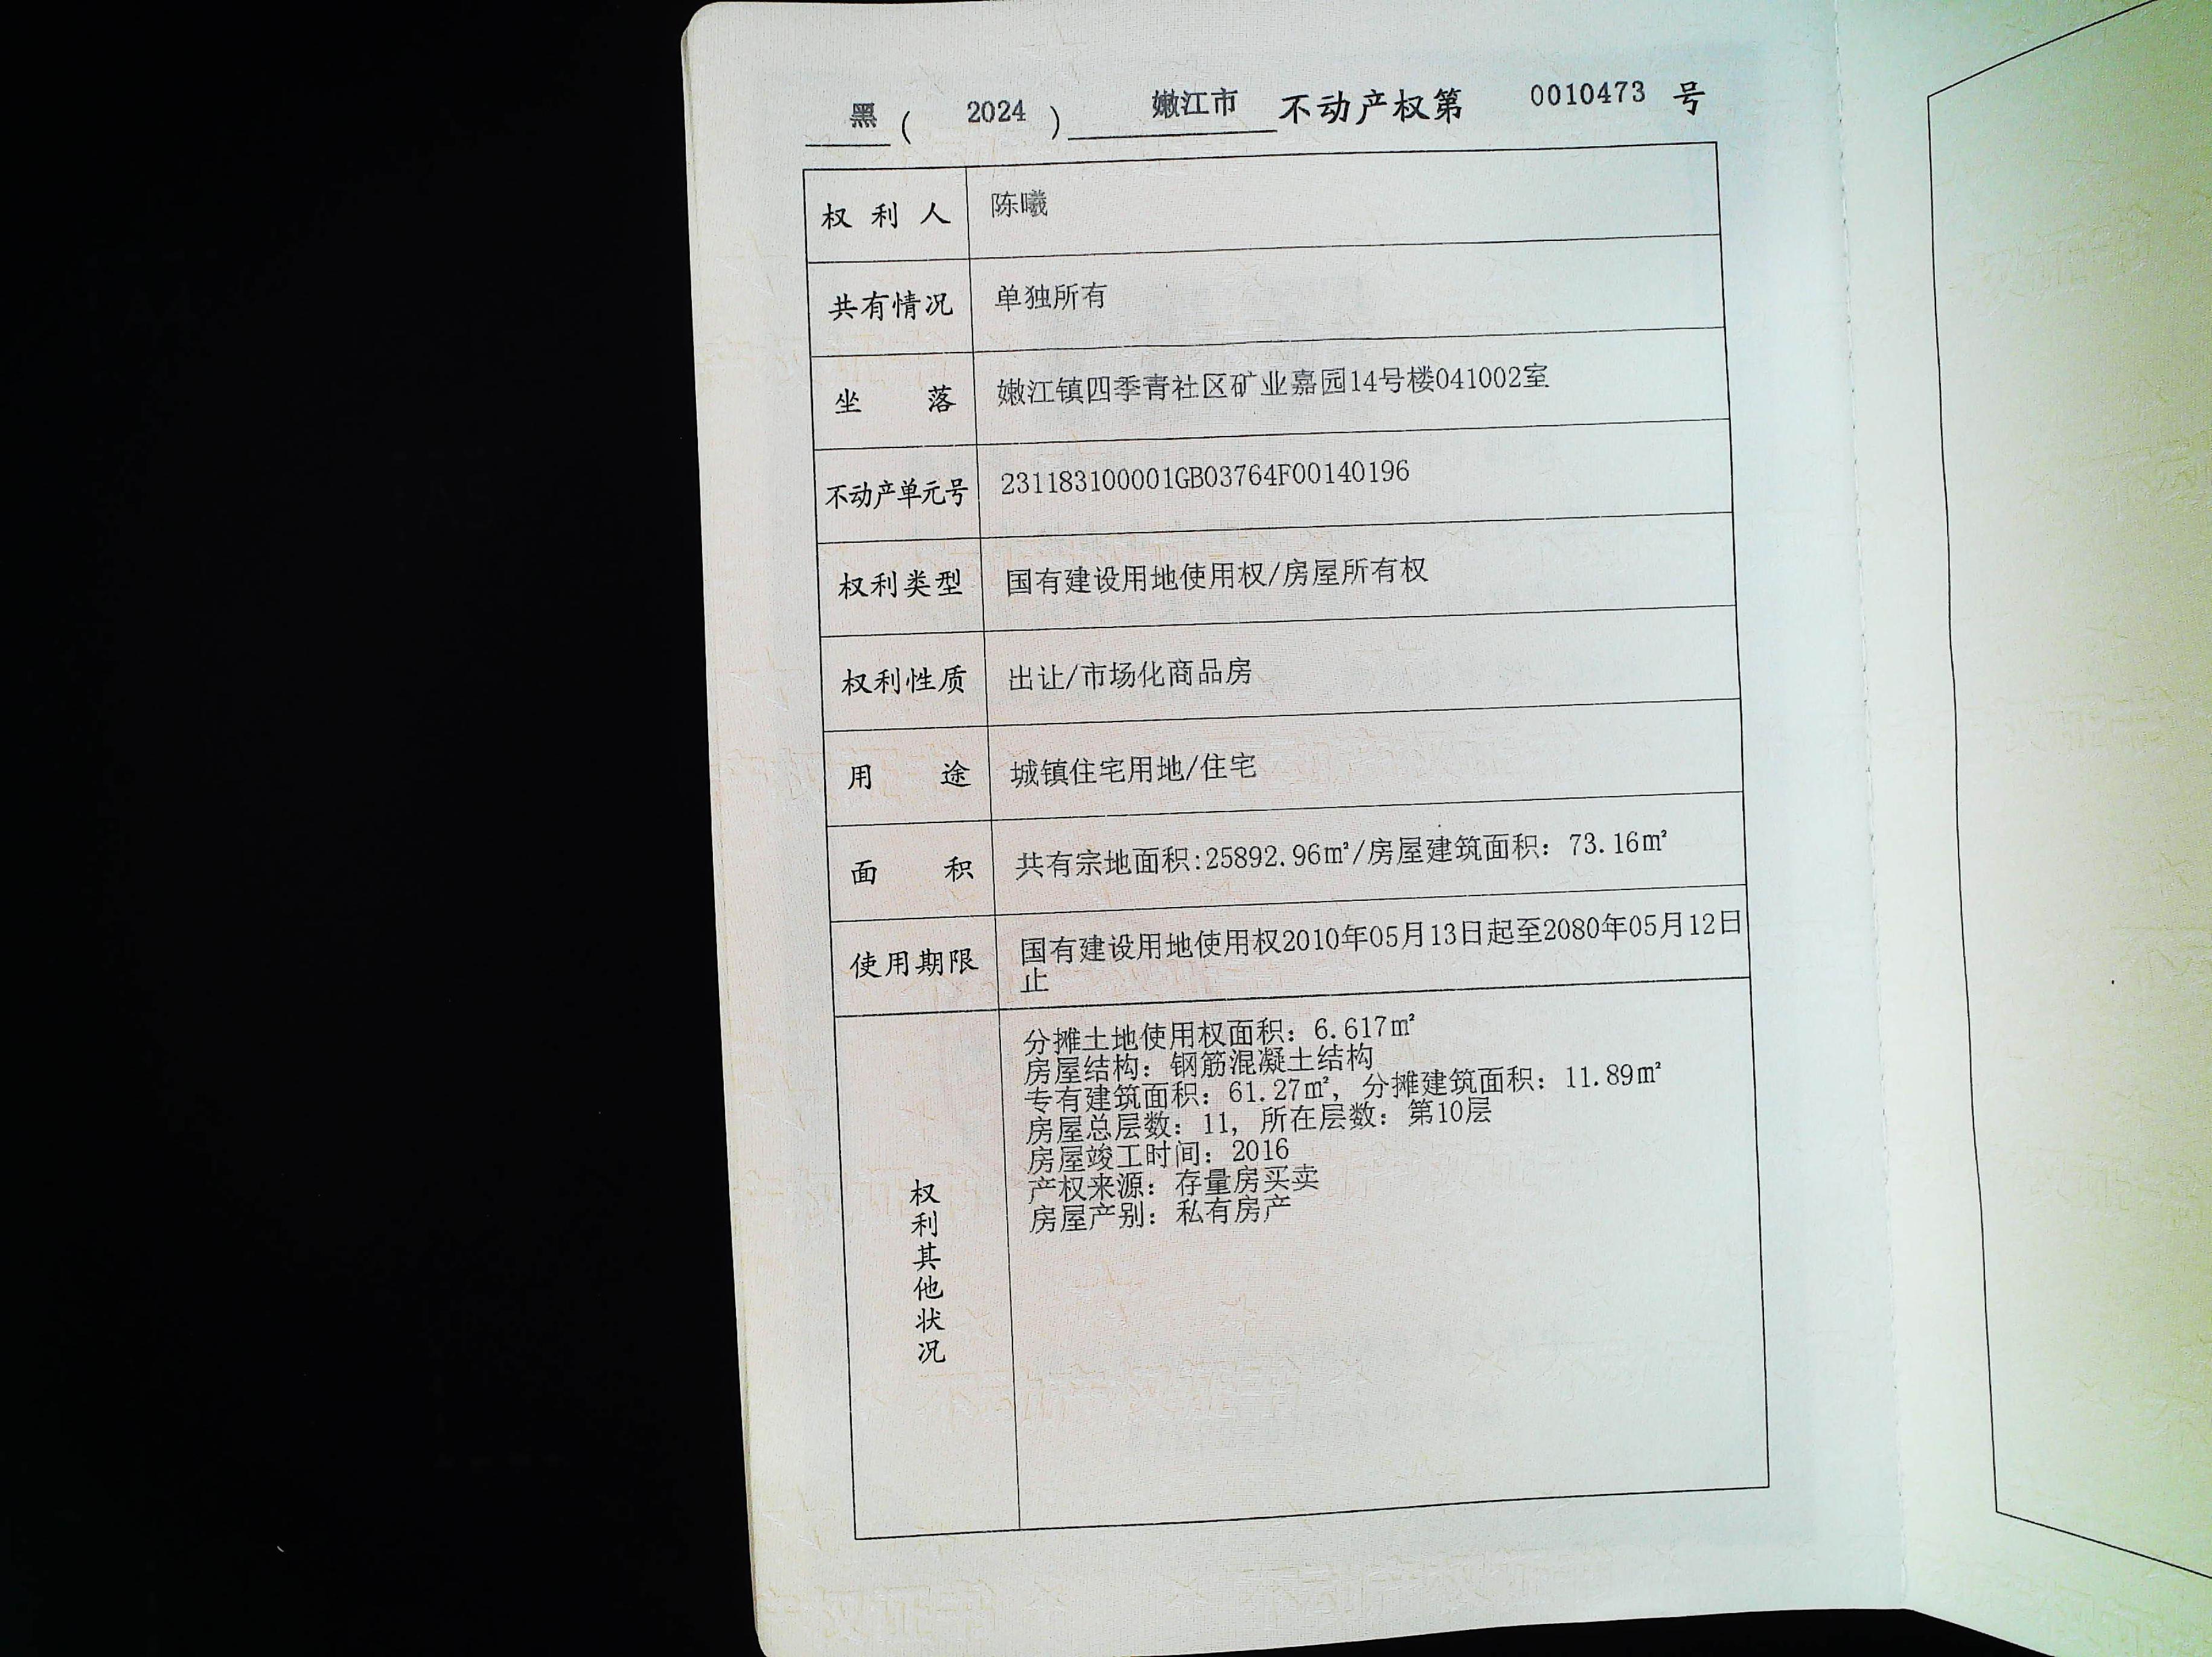 黑 ( 2024 ) 嫩江市 不动产权第 0010473 号
权利人 陈曦
共有情况 单独所有
坐落 嫩江镇四季青社区矿业嘉园14号楼041002室
不动产单元号 231183100001GB03764F00140196
权利类型 国有建设用地使用权/房屋所有权
权利性质 出让/市场化商品房
用途 城镇住宅用地/住宅
面积 共有宗地面积:25892.96㎡/房屋建筑面积：73.16㎡
使用期限 国有建设用地使用权2010年05月13日起至2080年05月12日
止
权利其他状况
分摊土地使用权面积：6.617㎡
房屋结构：钢筋混凝土结构
专有建筑面积：61.27㎡，分摊建筑面积：11.89㎡
房屋总层数：11，所在层数：第10层
房屋竣工时间：2016
产权来源：存量房买卖
房屋产别：私有房产